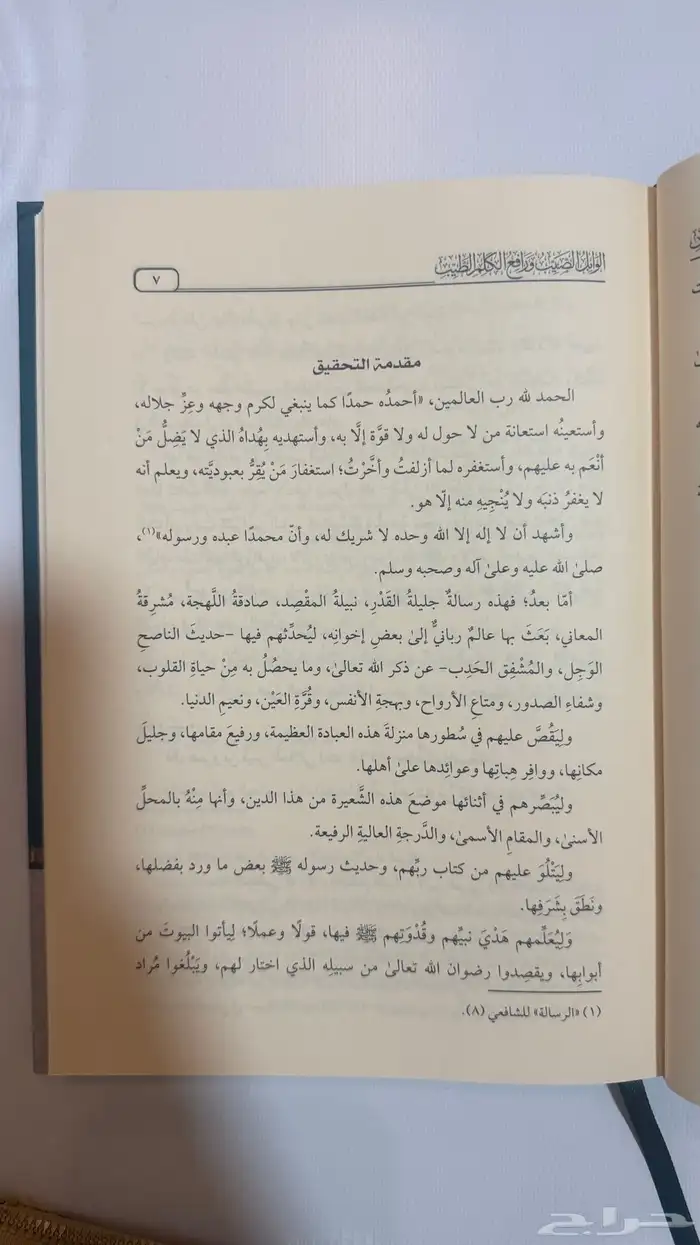 الوابل الصيب ورافع الكلم الطيب
٧
مقدمة التحقيق
الحمد لله رب العالمين، «أحمدُه حمدًا كما ينبغي لكرم وجهه وعِزِّ جلاله،
وأستعينُه استعانة من لا حول له ولا قوَّة إلَّا به، وأستهديه بِهُداهُ الذي لا يَضِلُّ مَنْ
أنْعَم به عليهم، وأستغفره لما أزلفتُ وأخَّرْتُ؛ استغفارَ مَنْ يُقِرُّ بعبوديَّته، ويعلم أنه
لا يغفرُ ذنبَه ولا يُنْجِيهِ منه إلَّا هو.
وأشهد أن لا إله إلا الله وحده لا شريك له، وأنّ محمدًا عبده ورسوله»(١)،
صلىٰ الله عليه وعلىٰ آله وصحبه وسلم.
أمّا بعدُ؛ فهذه رسالةٌ جليلةُ القَدْرِ، نبيلةُ المقْصِد، صادقةُ اللَّهجة، مُشرِقةُ
المعاني، بَعَثَ بها عالمٌ ربانيٌّ إلىٰ بعضِ إخوانِه، ليُحدِّثهم فيها -حديثَ الناصحِ
الوَجِل، والمُشْفِق الحَدِب- عن ذكر الله تعالىٰ، وما يحصُلُ به مِنْ حياةِ القلوب،
وشفاءِ الصدور، ومتاعِ الأرواح، وبهجةِ الأنفس، وقُرَّةِ العَيْن، ونعيمِ الدنيا.
ولِيَقُصَّ عليهم في سُطورها منزلةَ هذه العبادة العظيمة، ورفيعَ مقامها، وجليلَ
مكانِها، ووافِر هِباتِها وعوائِدها علىٰ أهلها.
وليُبَصِّرهم في أثنائها موضعَ هذه الشَّعيرة من هذا الدين، وأنها مِنْهُ بالمحلِّ
الأسنىٰ، والمقامِ الأسمىٰ، والدَّرجةِ العاليةِ الرفيعة.
ولِيَتْلُوَ عليهم من كتاب ربِّهم، وحديث رسوله ﷺ بعض ما ورد بفضلها،
ونَطَقَ بِشَرَفِها.
وَلِيُعَلِّمهم هَدْيَ نبيِّهم وقُدْوَتِهم ﷺ فيها، قولًا وعملًا؛ لِيأتوا البيوتَ من
أبوابِها، ويقصِدوا رضوان الله تعالىٰ من سبيلِه الذي اختار لهم، ويَبْلُغوا مُراد
(١) «الرسالة» للشافعي (٨).
حراج